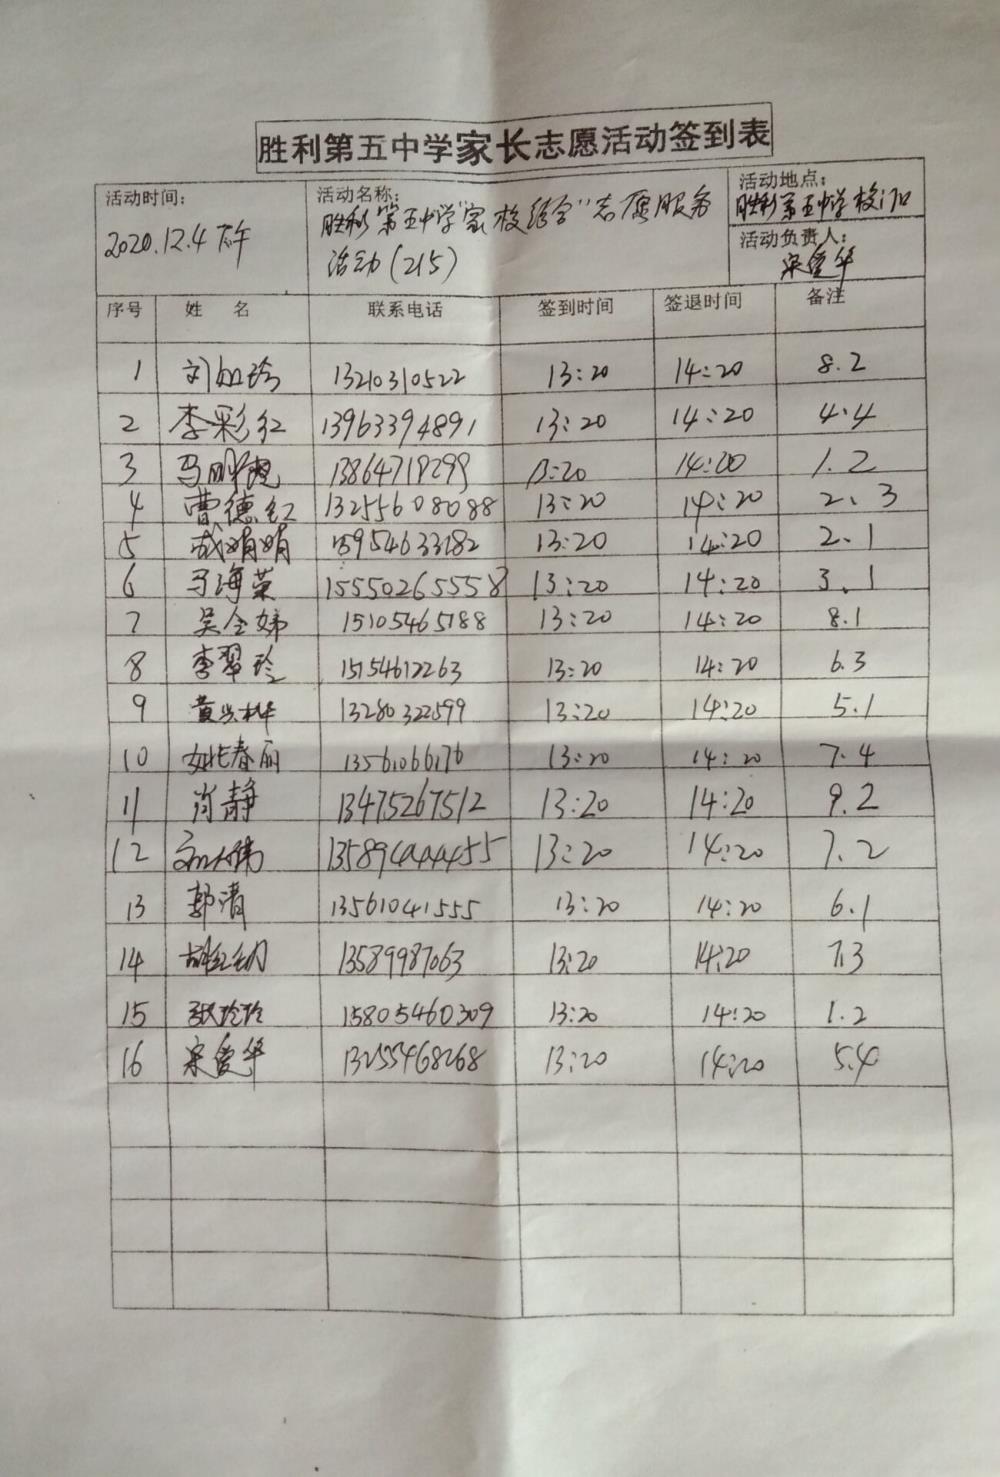 胜利第五中学家长志愿活动签到表
活动时间: 2020.12.4 下午
活动名称: 胜利第五中学"家校结合"志愿服务
活动(215)
活动地点: 胜利第五中学校门口
活动负责人: 宋爱华
序号 姓 名 联系电话 签到时间 签退时间 备注
1 刘如珍 13210310522 13:20 14:20 8.2
2 李彩红 13963394891 13:20 14:20 4.4
3 13864719299 13:20 14:20 1.2
4 曹德红 13255608088 13:20 14:20 2.3
5 成娟娟 15954633182 13:20 14:20 2.1
6 马海荣 15550265558 13:20 14:20 3.1
7 吴金娣 15105465188 13:20 14:20 8.1
8 李翠玲 15154612263 13:20 14:20 6.3
9 13280322599 13:20 14:20 5.1
10 姚春丽 13561066176 13:20 14:20 7.4
11 肖静 13475267512 13:20 14:20 9.2
12 13:20 14:20 7.2
13 郭清 13561041555 13:20 14:20 6.1
14 13589987063 13:20 14:20 7.3
15 张玲玲 15805460309 13:20 14:20 1.2
16 宋爱华 13255468268 13:20 14:20 5.4